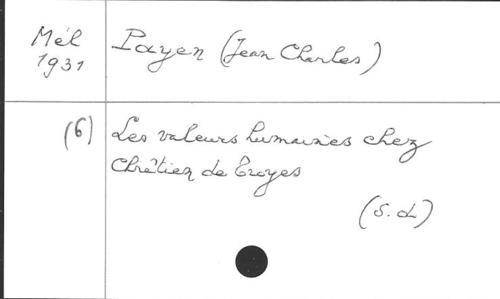 Mél
1931
Payen (Jean Charles)
(6)
Les valeurs humaines chez
Chrétien de Troyes
(S. d)